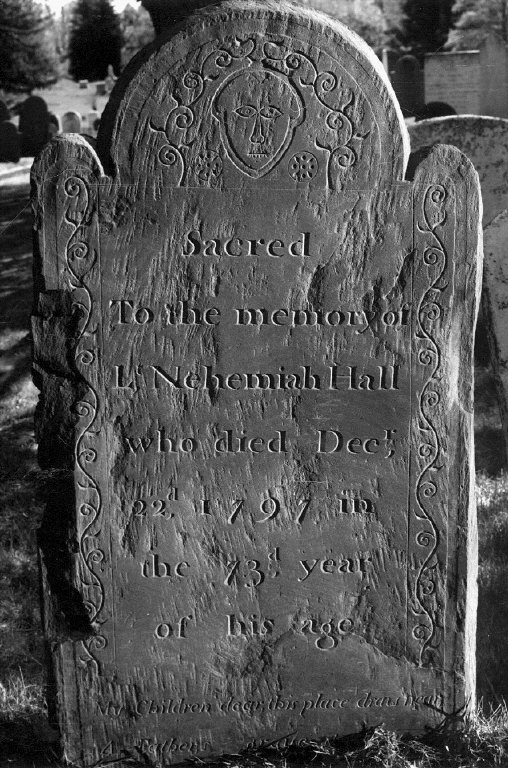 Sacred
To the memory of
Lt Nehemiah Hall
who died Decr,
22d, 1797, in
the 73d, year
of his age
My Children dear this place draw near
A Fathers